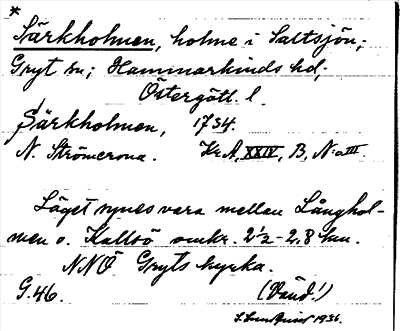 *
Särkholmen, holme i Saltsjön,
Gryt sn; Hammarkinds hd,
Östergötl. l.
Särkholmen, 1734.
N. Strömcrona. Kr.A, XXIV, B, N:o III.
Läget synes vara mellan Långhol-
men o. Kallsö omkr. 2½-2,8 km.
NNÖ Gryts kyrka.
G.46. (Vänd!)
1936.